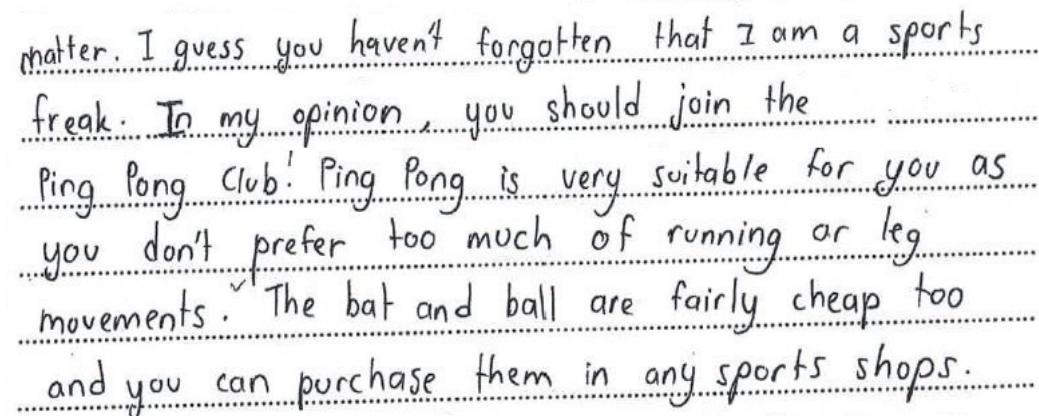 matter. I guess you haven't forgotten that I am a sports
freak. In my opinion, you should join the
Ping Pong Club! Ping Pong is very suitable for you as
you don't prefer too much of running or leg
movements. The bat and ball are fairly cheap too
and you can purchase them in any sports shops.